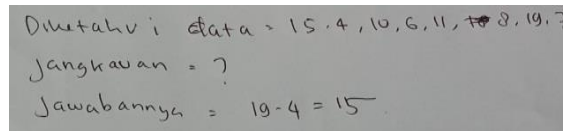 Diketahui data = 15. 4, 10, 6, 11, 8, 19,
Jangkauan = ?
Jawabannya = 19-4 = 15